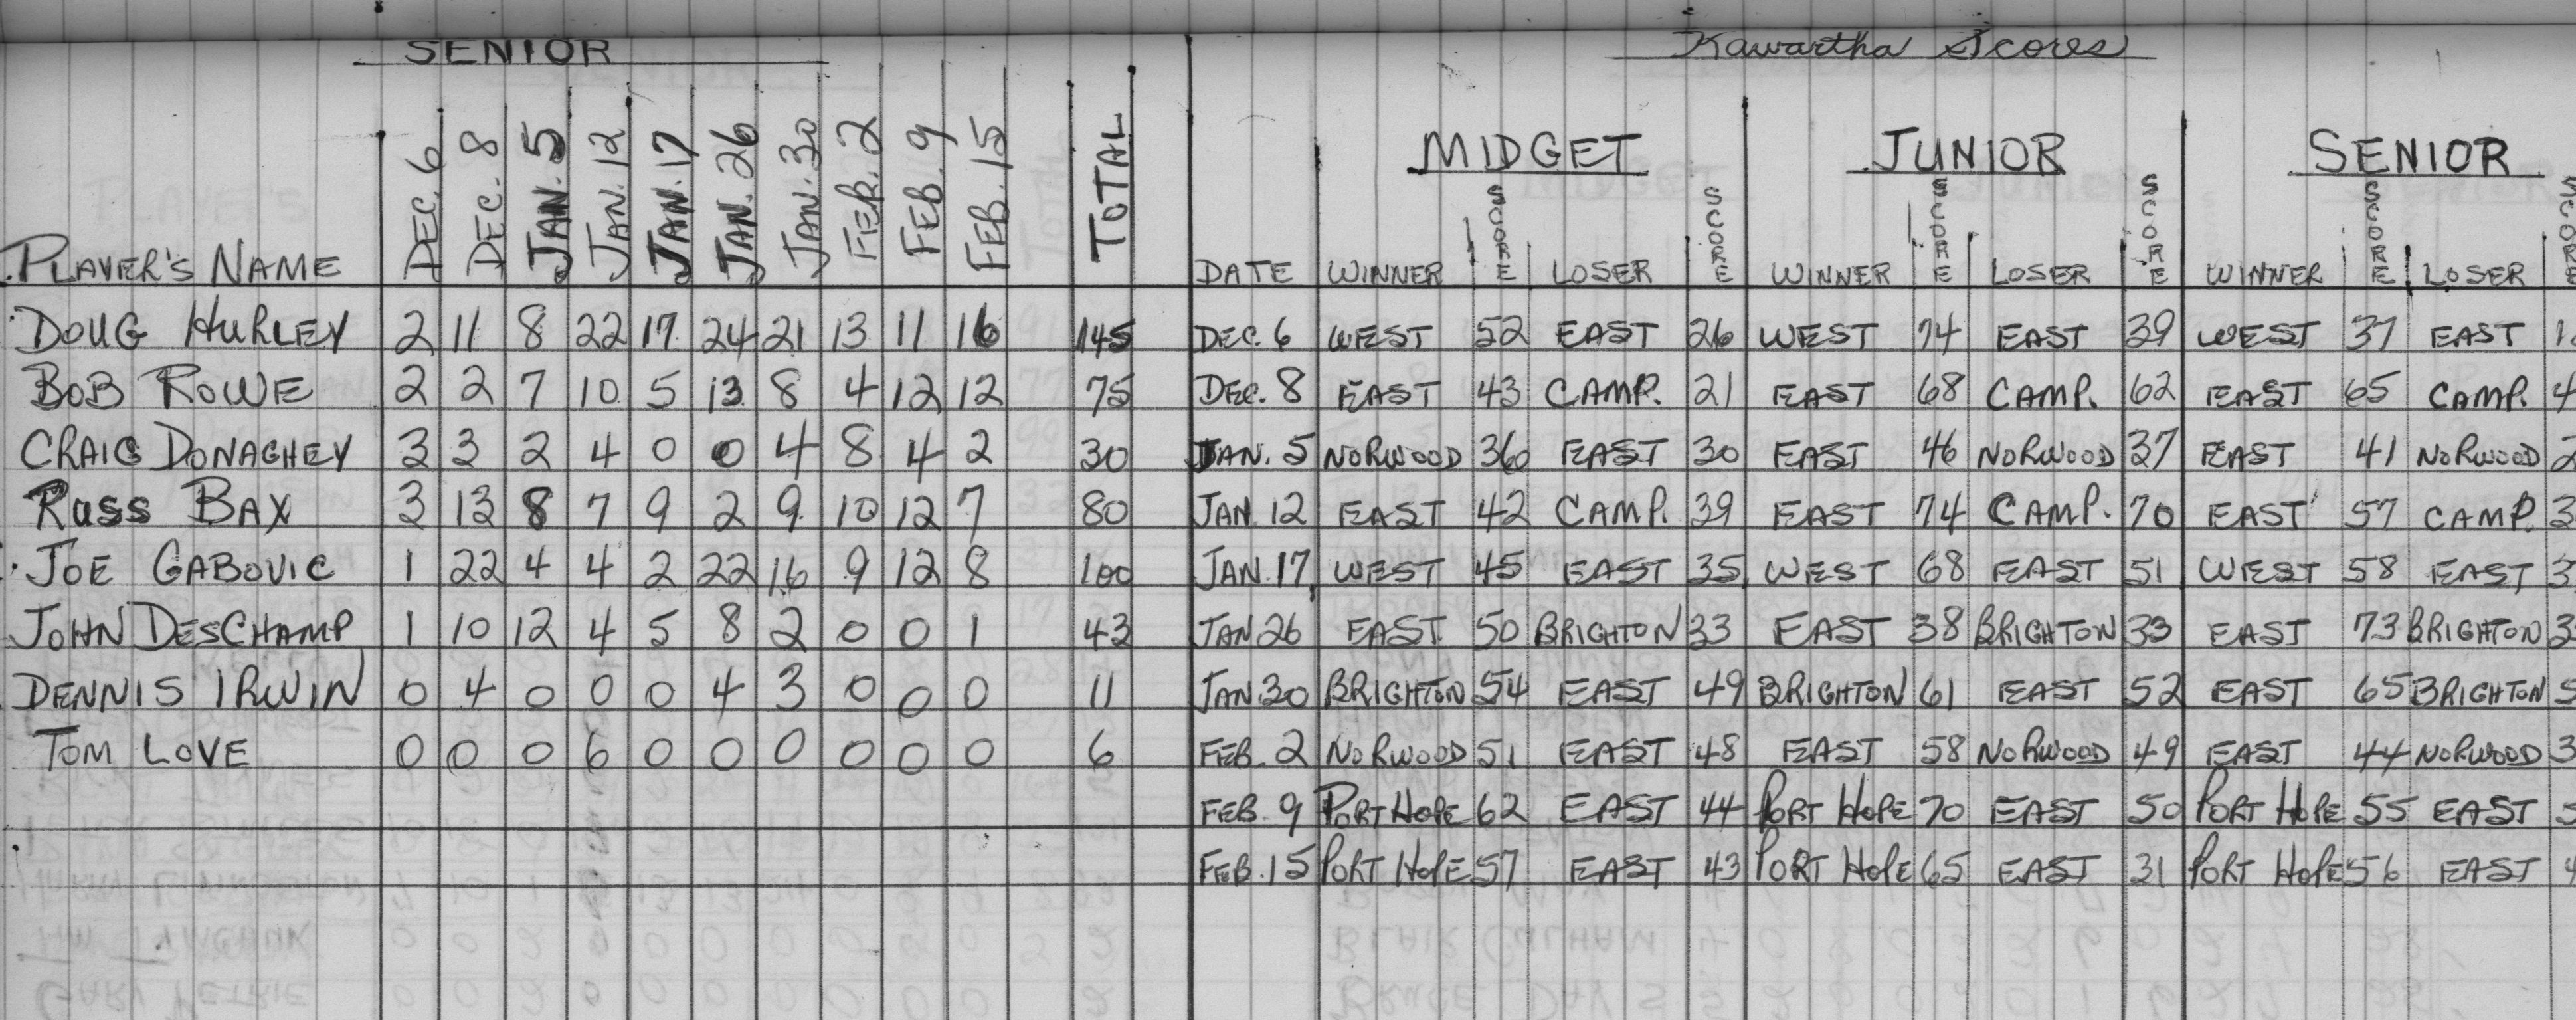 SENIOR
PLAYER'S NAME DEC. 6 DEC. 8 JAN. 5 JAN. 12 JAN. 17 JAN. 26 JAN. 30 FEB. 2 FEB. 9 FEB. 15 TOTAL
DOUG HURLEY 2 11 8 22 17 24 21 13 11 16 145
BOB ROWE 2 2 7 10 5 13 8 4 12 12 75
CRAIG DONAGHEY 3 3 2 4 0 0 4 8 4 2 30
RUSS BAX 3 13 8 7 9 2 9 10 12 7 80
JOE GABOVIC 1 22 4 4 2 22 16 9 12 8 100
JOHN DESCHAMP 1 10 12 4 5 8 2 0 0 1 43
DENNIS IRWIN 0 4 0 0 0 4 3 0 0 0 11
TOM LOVE 0 0 0 6 0 0 0 0 0 0 6
Kawartha Scores
MIDGET JUNIOR SENIOR
DATE WINNER SCORE LOSER SCORE WINNER SCORE LOSER SCORE WINNER SCORE LOSER SCORE
DEC. 6 WEST 52 EAST 26 WEST 74 EAST 39 WEST 37 EAST
DEC. 8 EAST 43 CAMP. 21 EAST 68 CAMP. 62 EAST 65 CAMP. 4
JAN. 5 NORWOOD 36 EAST 30 EAST 46 NORWOOD 37 EAST 41 NORWOOD 2
JAN. 12 EAST 42 CAMP. 39 EAST 74 CAMP. 70 EAST 57 CAMP. 3
JAN. 17 WEST 45 EAST 35 WEST 68 EAST 51 WEST 58 EAST 3
JAN 26 EAST 50 BRIGHTON 33 EAST 38 BRIGHTON 33 EAST 73 BRIGHTON 3
JAN. 30 BRIGHTON 54 EAST 49 BRIGHTON 61 EAST 52 EAST 65 BRIGHTON 5
FEB. 2 NORWOOD 51 EAST 48 EAST 58 NORWOOD 49 EAST 44 NORWOOD 3
FEB. 9 PORT HOPE 62 EAST 44 PORT HOPE 70 EAST 50 PORT HOPE 55 EAST 5
FEB. 15 PORT HOPE 57 EAST 43 PORT HOPE 65 EAST 31 PORT HOPE 56 EAST 4